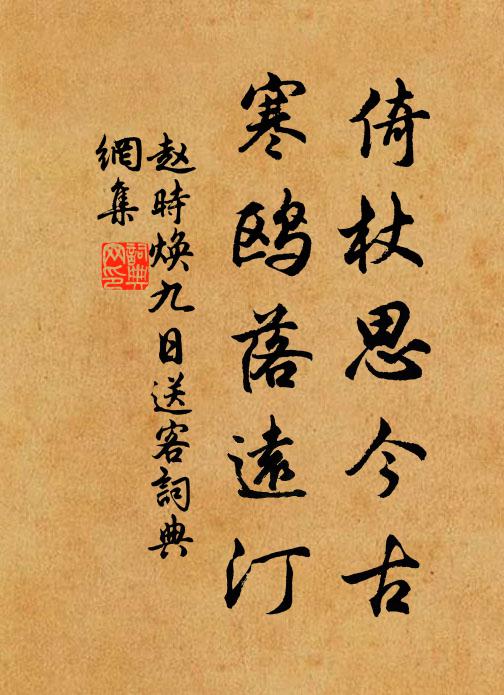 倚杖思今古
寒鸥落遠汀
赵時焕九日送客詞典
網集
詞典
网印